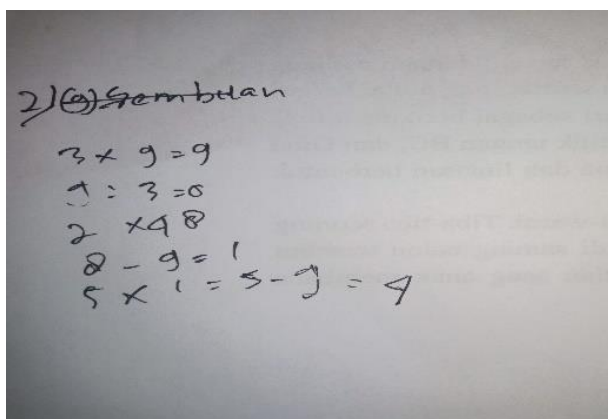 2) (9) Sembilan
3 x 9 = 9
9 : 3 = 0
2 x 4 8
8 - 9 = 1
5 x 1 = 5 - 9 = 4